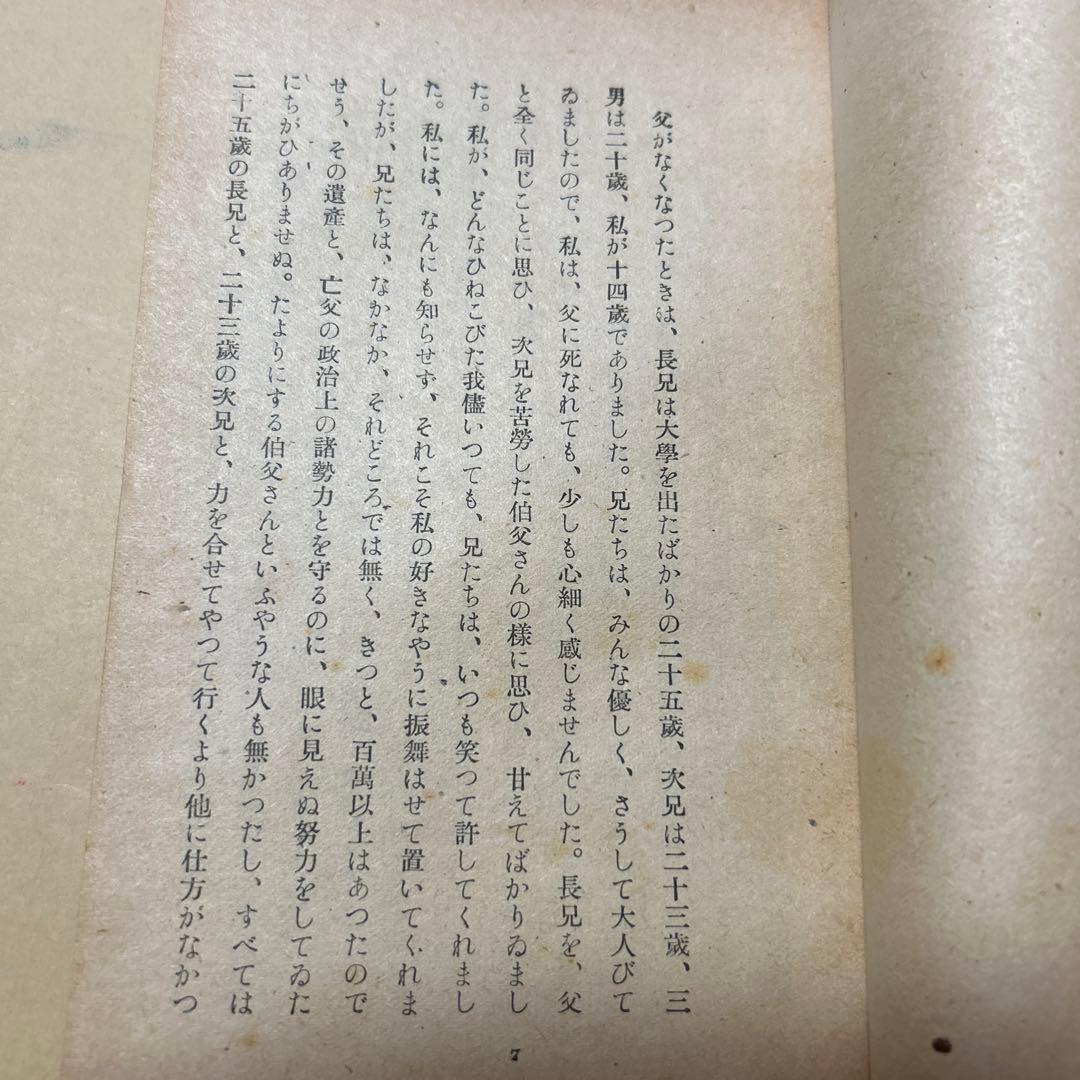 父がなくなつたときは、長兄は大學を出たばかりの二十五歲、次兄は二十三歲、三
男は二十歲、私が十四歲でありました。兄たちは、みんな優しく、さうして大人びて
ゐましたので、私は、父に死なれても、少しも心細く感じませんでした。長兄を、父
と全く同じことに思ひ、次兄を苦勞した伯父さんの樣に思ひ、甘えてばかりゐまし
た。私が、どんなひねこびた我儘いつても、兄たちは、いつも笑つて許してくれまし
た。私には、なんにも知らせず、それこそ私の好きなやうに振舞はせて置いてくれま
したが、兄たちは、なかなか、それどころでは無く、きつと、百萬以上はあつたので
せう、その遺產と、亡父の政治上の諸勢力とを守るのに、眼に見えぬ努力をしてゐた
にちがひありませぬ。たよりにする伯父さんといふやうな人も無かつたし、すべては
二十五歲の長兄と、二十三歲の次兄と、力を合せてやつて行くより他に仕方がなかつ
7